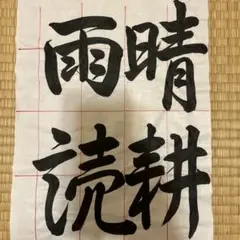 晴耕
雨読